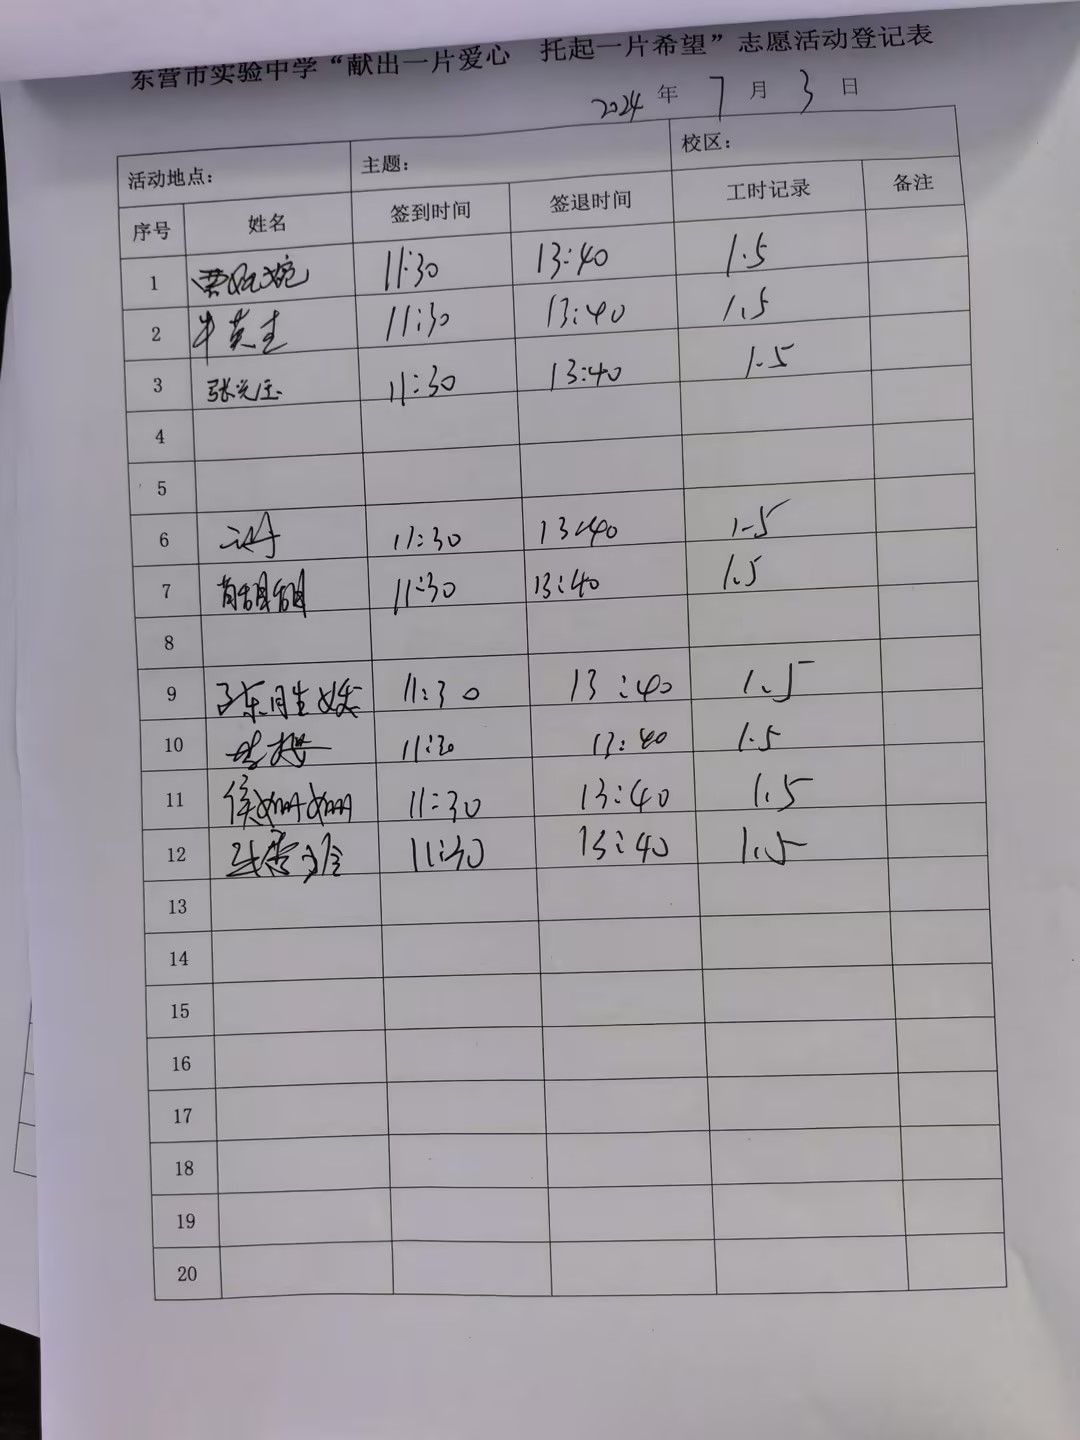 东营市实验中学“献出一片爱心 托起一片希望”志愿活动登记表
2024 年 7 月 3 日
活动地点： 主题： 校区：
序号 姓名 签到时间 签退时间 工时记录 备注
1 11:30 13:40 1.5
2 牛英杰 11:30 13:40 1.5
3 张光玉 11:30 13:40 1.5
4
5
6 11:30 13:40 1.5
7 肖娟娟 11:30 13:40 1.5
8
9 11:30 13:40 1.5
10 11:30 13:40 1.5
11 侯姗姗 11:30 13:40 1.5
12 11:30 13:40 1.5
13
14
15
16
17
18
19
20